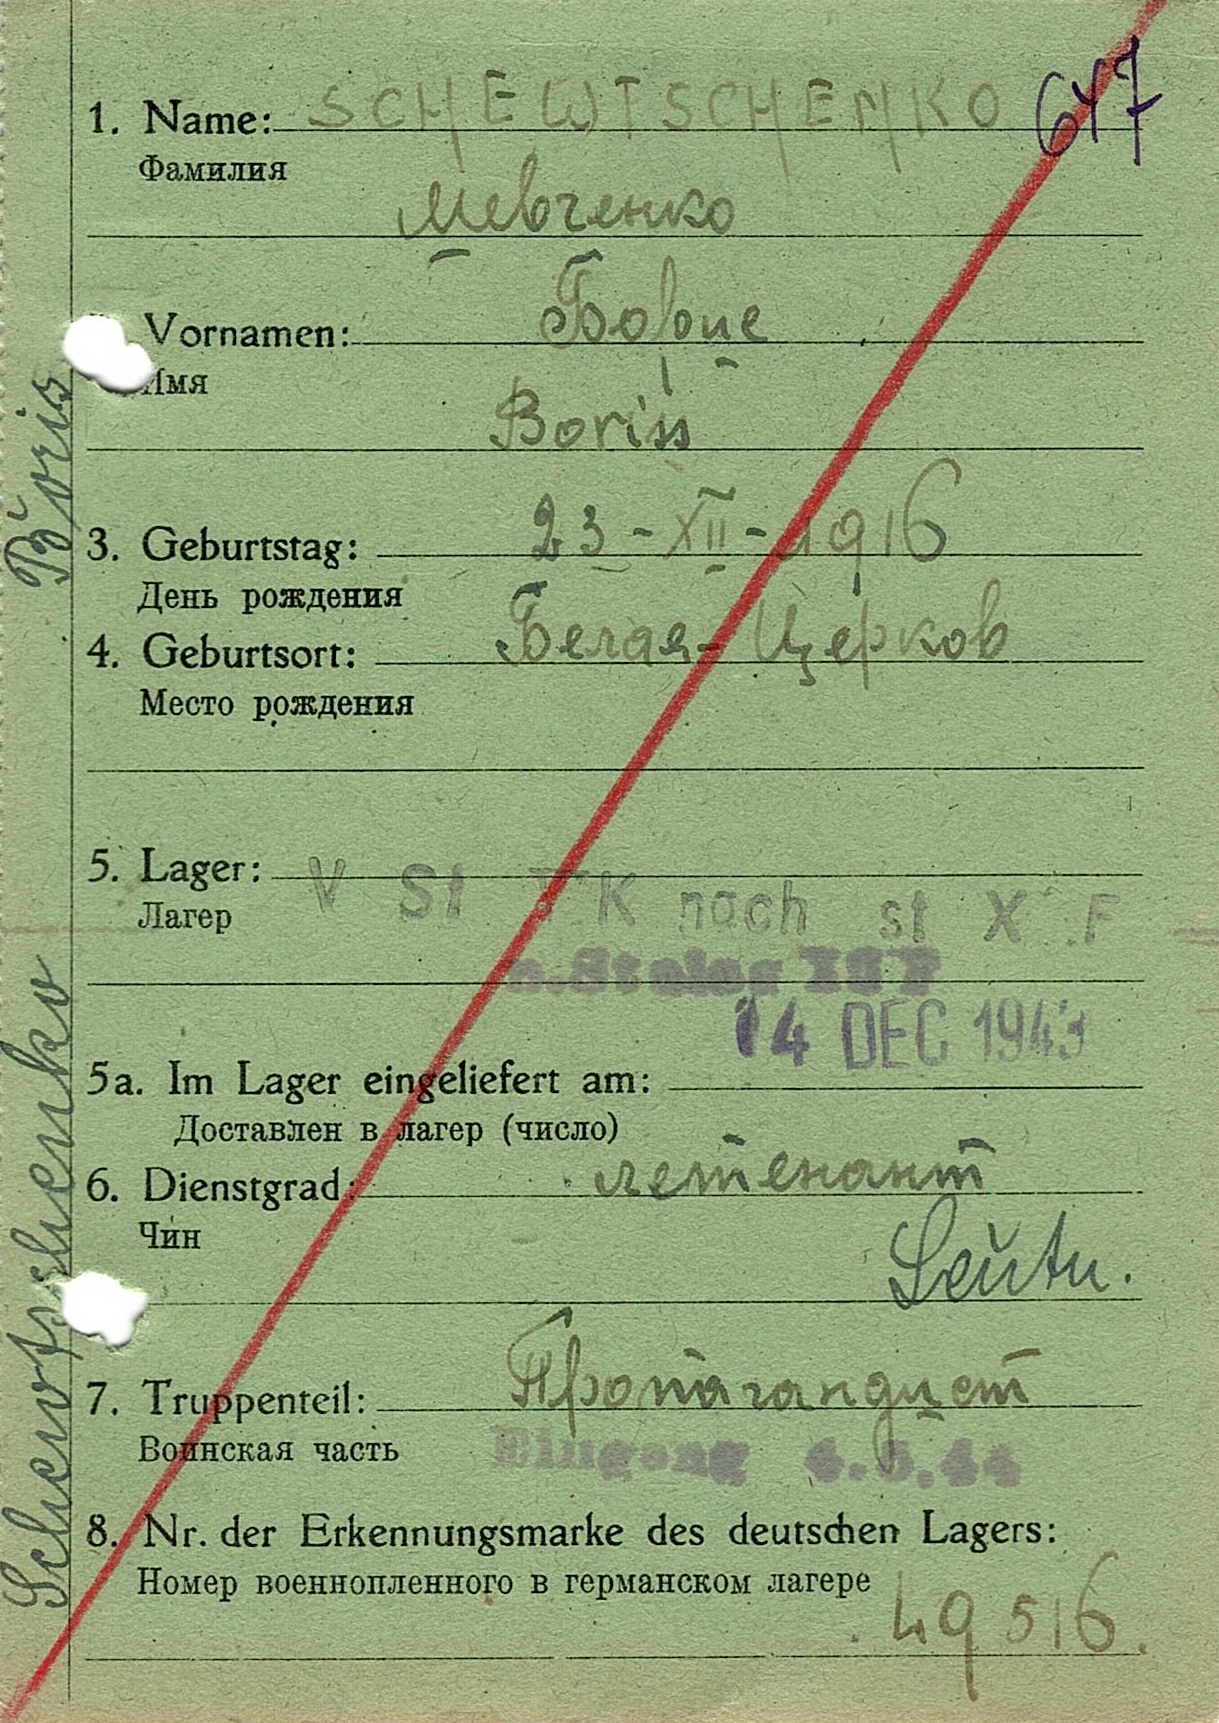 1. Name: SCHEWTSCHENKO 647
Фамилия
Шевченко
Vornamen: Борис
Имя
Boriss
3. Geburtstag: 23-XII-1916
День рождения
4. Geburtsort: Белая-Церков
Место рождения
5. Lager: V St K nach st X F
Лагер
14 DEC 1943
5a. Im Lager eingeliefert am:
Доставлен в лагер (число)
6. Dienstgrad: летенант
Чин
Leutn.
7. Truppenteil: Пропагандист
Воинская часть
Eingang 4.5.44
8. Nr. der Erkennungsmarke des deutschen Lagers:
Номер военнопленного в германском лагере
49516.
Schewtschenko Boris